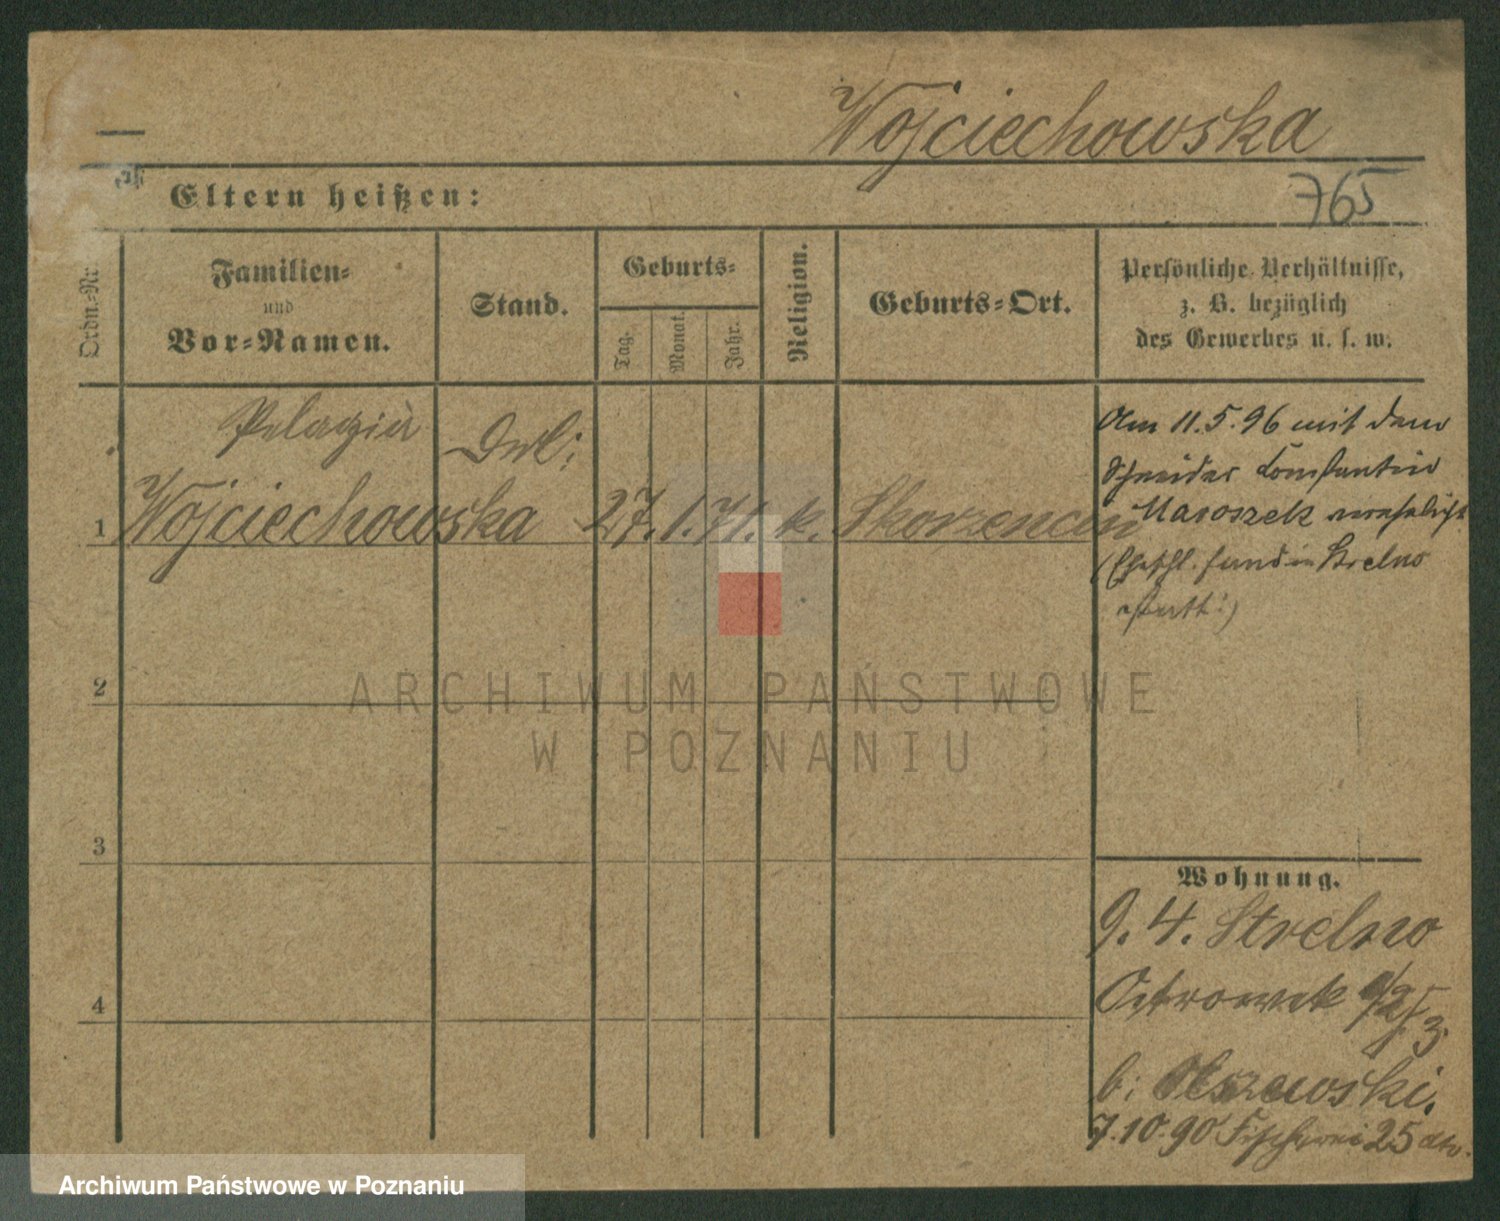 Wojciechowska
765
Eltern heißen:
Ordn.-Nr.
Familien-
und
Vor-Namen.
Stand.
Geburts-
Tag.
Monat.
Jahr.
Religion.
Geburts-Ort.
Persönliche Verhältnisse,
z. B. bezüglich
des Gewerbes u. s. w.
Pelagia
1 Wojciechowska 27. 1. 71. k. Skorzencin
Am 11.5.96 mit dem
Schneider Constantin
Maroszek verehelicht
(Eheschl. fand in Strelno
statt:)
2
3
4
Wohnung.
9. 4. Strelno
Ostrowek
b: Olszewski.
7.10.90 Fischerei 25
ARCHIWUM PAŃSTWOWE
W POZNANIU
Archiwum Państwowe w Poznaniu